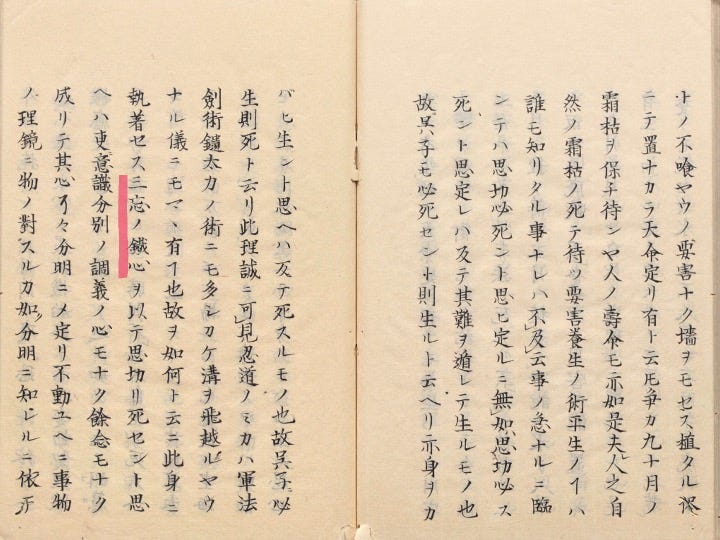 トノ不喰ヤウノ要害ナク墻ヲモセス植タル
ニテ置ナカラ天命定リ有ト云𪜈争カ九十月ノ
霜枯ヲ保チ待ンヤ人ノ壽命モ亦如是夫人之自
然ノ霜枯ノ死テ待ツ要害養生ノ術平生ノイハ
誰モ知リタル事ナレハ不及云事ノ急ナルニ臨
ンテハ思切必死ント思ヒ定ルニ無如思切必ス
死ント思定レハ及テ其難ヲ遁レテ生ルモノ也
故呉子モ必死セント則生ルト云ヘリ亦身ヲカ
バヒ生ント思ヘハ及テ死スルモノ也故呉子必
生則死ト云リ此理誠ニ可見忍道ノミカハ軍法
劍術鑓太刀ノ術ニモ多シカケ溝ヲ飛越ルヤウ
ナル儀ニモマヽ有ヿ也故ヲ如何ト云ニ此身ニ
執着セス三忘ノ鐵心ヲ以テ思切リ死セント思
ヘハ更意識分別ノ調義ノ心モナク餘念モナク
成リテ其心可々分明ニメ定リ不動ユヘニ事物
ノ理鏡ニ物ノ對スルカ如分明ニ知ヒルニ依テ